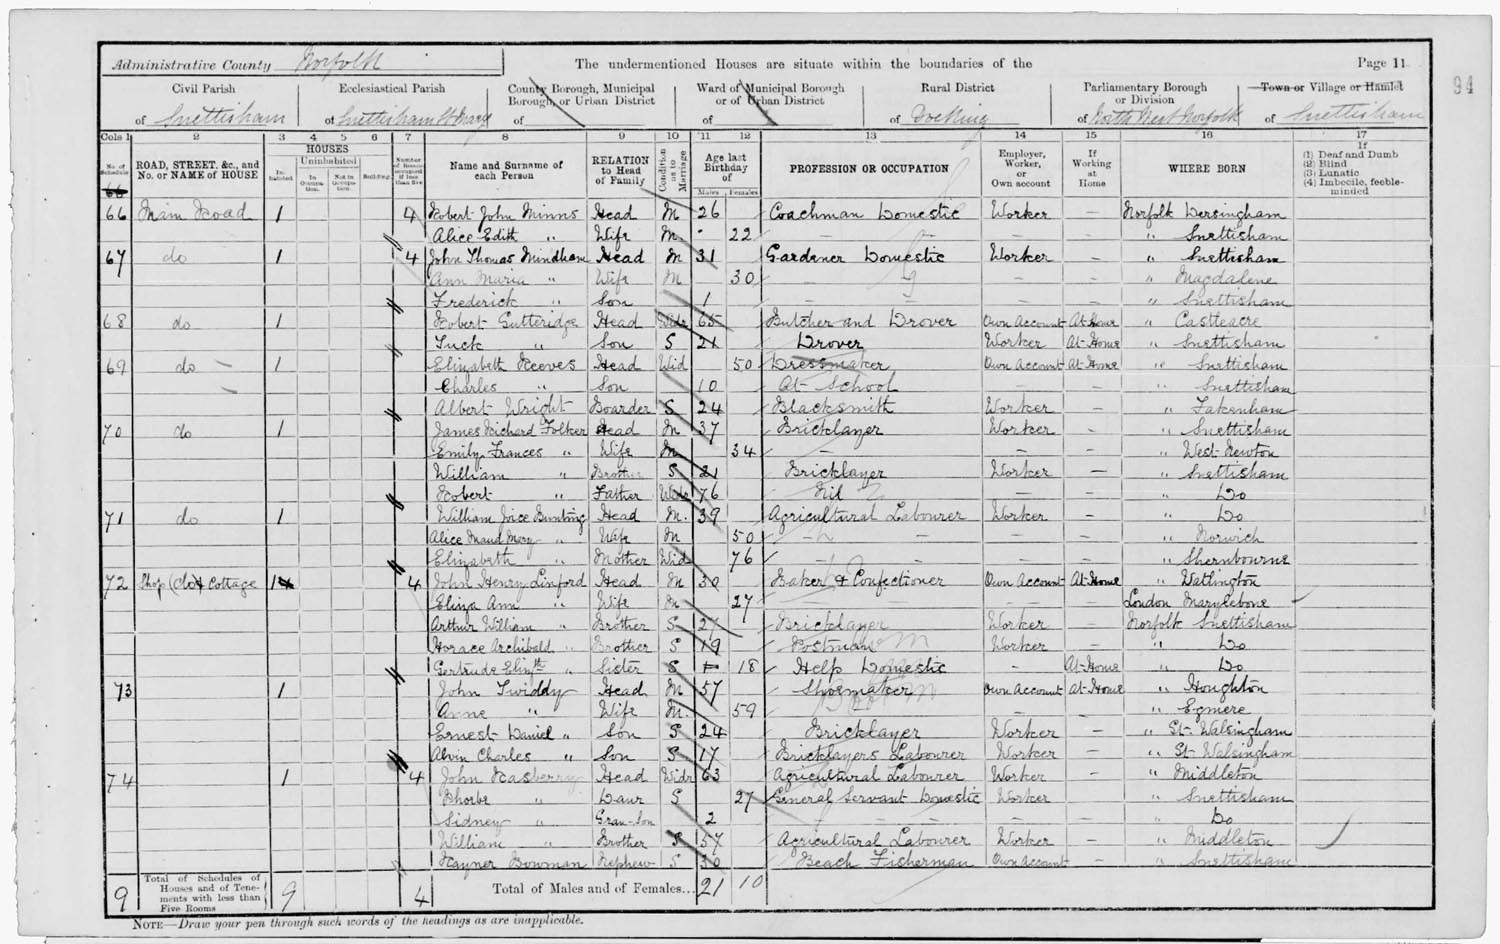 Administrative County Norfolk
The undermentioned Houses are situate within the boundaries of the
Page 11
94
Civil Parish of Snettisham
Ecclesiastical Parish of Snettisham St Mary
County Borough, Municipal Borough, or Urban District of
Ward of Municipal Borough or of Urban District of
Rural District of Docking
Parliamentary Borough or Division of North West Norfolk
Town or Village or Hamlet of Snettisham
Cols 1 2 3 4 5 6 7 8 9 10 11 12 13 14 15 16 17
No. of Schedule
ROAD, STREET, &c., and No. or NAME of HOUSE
HOUSES
Inhabited
Uninhabited
In Occupation.
Not in Occupation.
Building.
Number of Rooms occupied if less than five
Name and Surname of each Person
RELATION to Head of Family
Condition as to Marriage
Age last Birthday of
Males Females
PROFESSION OR OCCUPATION
Employer, Worker, or Own account
If Working at Home
WHERE BORN
If (1) Deaf and Dumb (2) Blind (3) Lunatic (4) Imbecile, feeble-minded
66
66 Main Road 1 4 Robert John Minns Head M 26 Coachman Domestic Worker — Norfolk Dersingham
Alice Edith " Wife M 22 — — — " Snettisham
67 do 1 4 John Thomas Mindham Head M 31 Gardener Domestic Worker — " Snettisham
Ann Maria " Wife M 30 — — — " Magdalene
Frederick " Son 1 — — — " Snettisham
68 do 1 Robert Gutteridge Head Widr 65 Butcher and Drover Own Account At Home " Castleacre
Tuck " Son S 21 Drover Worker At Home " Snettisham
69 do 1 Elizabeth Reeves Head Wid 50 Dressmaker Own Account At Home " Snettisham
Charles " Son 10 At School — — " Snettisham
Albert Wright Boarder S 24 Blacksmith Worker — " Fakenham
70 do 1 James Richard Folker Head M 37 Bricklayer Worker — " Snettisham
Emily Frances " Wife M 34 — — — " West Newton
William " Brother S 21 Bricklayer Worker — " Snettisham
Robert " Father Widr 76 Nil — — " Do
71 do 1 William Bunting Head M. 39 Agricultural Labourer Worker — " Do
Alice Maud Mary " Wife M 50 — — — " Norwich
Elizabeth " Mother Wid 76 — — — " Shernbourne
72 Shop (do) & Cottage 1 4 John Henry Linford Head M 30 Baker & Confectioner Own Account At Home " Watlington
Eliza Ann " Wife M 27 — — — London Marylebone
Arthur William " Brother S 21 Bricklayer Worker — Norfolk Snettisham
Horace Archibald " Brother S 19 Postman Worker — " Do
Gertrude Elizth " Sister S 18 Help Domestic — At Home " Do
73 1 John Twiddy Head M 57 Shoemaker Own Account At Home " Houghton
Anne " Wife M. 59 — — — " Egmere
Ernest Daniel " Son S 24 Bricklayer Worker — " St. Walsingham
Alvin Charles " Son S 17 Bricklayers Labourer Worker — " St. Walsingham
74 1 4 John Rasberry Head Widr 63 Agricultural Labourer Worker — " Middleton
Phoebe " Daur S 27 General Servant Domestic Worker " Snettisham
Sidney " Gran-Son 2 — — — " Do
William " Brother S 57 Agricultural Labourer Worker — " Middleton
Rayner Bowman Nephew S 30 Beach Fisherman Own Account — " Snettisham
9 Total of Schedules of Houses and of Tenements with less than Five Rooms 9 4 Total of Males and of Females... 21 10
NOTE—Draw your pen through such words of the headings as are inapplicable.